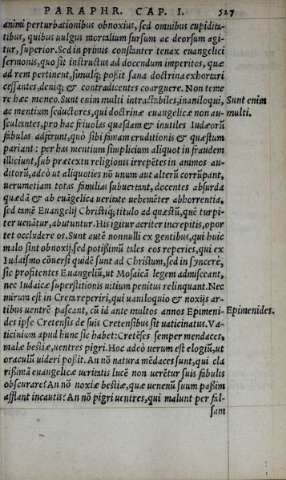 PARAPHR. CAP. I. 527
animi perturbationibus obnoxius, sed omnibus cupidita-
tibus, quibus uulgus mortalium sursum ac deorsum agi-
tur, superior. Sed in primis constanter tenax euangelici
sermonis, quo sit instructus ad docendum imperitos, quæ
ad rem pertinent, simulq; possit sana doctrina exhortari
cessantes, deniq; & contradicentes coarguere. Non teme
re hæc moneo. Sunt enim multi intractabiles, inaniloqui,
Sunt enim
multi.
ac mentium seductores, qui doctrinæ euangelicæ non au-
scultantes, pro hac friuolas quæstiões & inutiles Iudæorũ
fabulas adferunt, quo sibi famam eruditionis & quæstum
pariant: per has mentium simplicium aliquot in fraudem
illiciunt, sub prætextu religionis irrepẽtes in animos au-
ditorũ, adeò ut aliquoties nõ unum aut alterũ corrũpant,
uerumetiam totas familias subuertant, docentes absurda
quædã & ab euãgelica ueritate uehemẽter abhorrentia,
sed tamẽ Euangelij Christiq; titulo ad quæstũ, quẽ turpi-
ter uenãtur, abutuntur. His igitur acriter increpitis, opor
tet occludere os. Sunt autẽ nonnulli ex gentibus, qui huic
malo sint obnoxij, sed potissimũ tales eos reperies, qui ex
Iudaismo cõuersi quidẽ sunt ad Christum, sed in syncerè,
sic profitentes Euangeliũ, ut Mosaicã legem admisceant,
nec Iudaicæ superstitionis uitium penitus relinquant. Nec
mirum est in Creta reperiri, qui uaniloquio & noxijs ar-
tibus uentrẽ pascant, cũ id ante multos annos Epimeni-
Epimenides.
des ipse Cretensis de suis Cretensibus sit uaticinatus. Va-
ticinium apud hunc sic habet: Cretẽses semper mendaces,
malæ bestiæ, uentres pigri. Hoc adeò uerum est elogiũ, ut
oraculũ uideri possit. An nõ natura mẽdaces sunt, qui cla
rissimã euangelicæ ueritatis lucẽ non uerẽtur suis fabulis
obscurare? An nõ noxiæ bestiæ, quæ uenenũ suum passim
afflant incautis? An nõ pigri uentres, qui malunt per fal-
sam